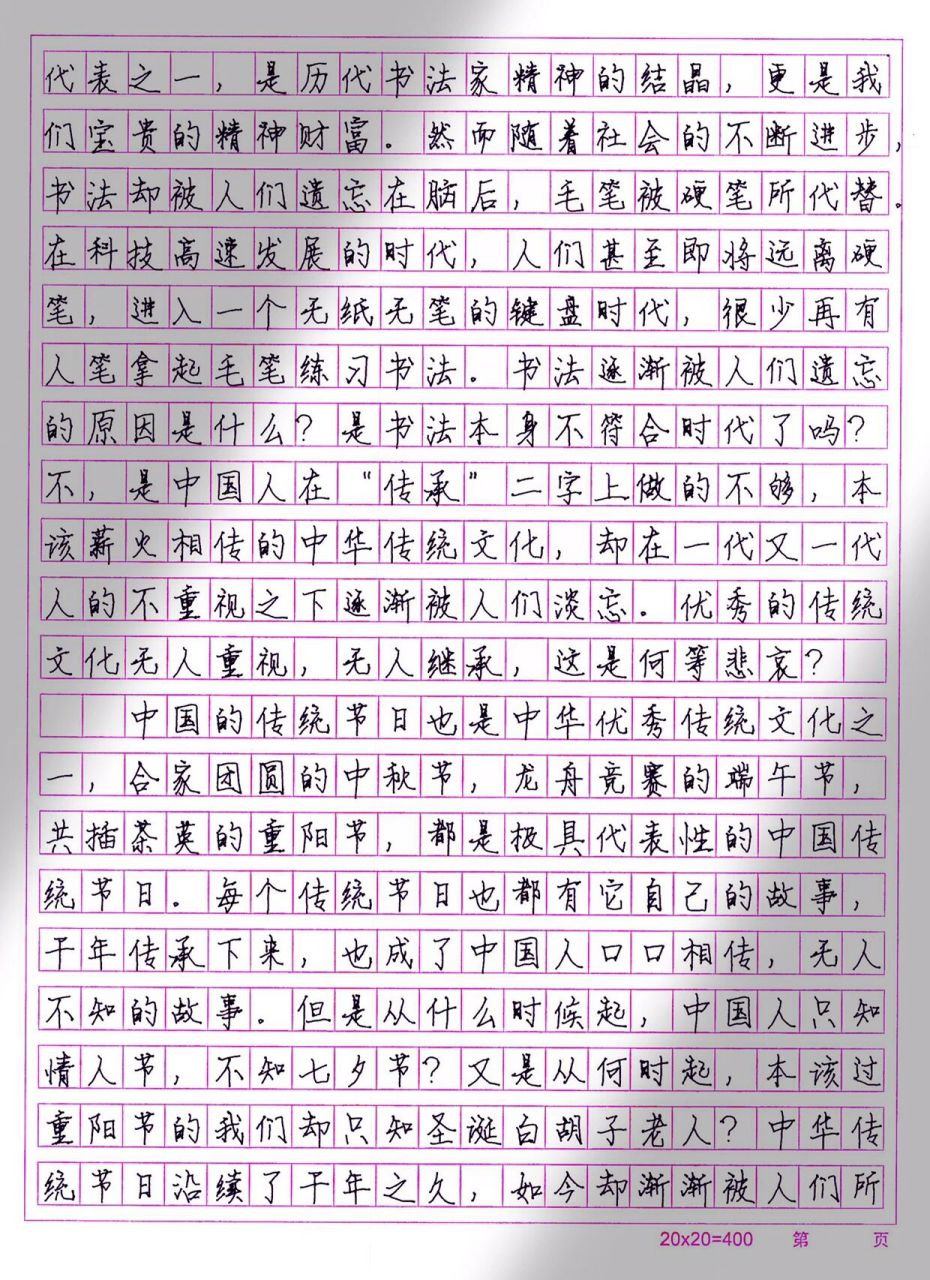 代表之一，是历代书法家精神的结晶，更是我
们宝贵的精神财富。然而随着社会的不断进步，
书法却被人们遗忘在脑后，毛笔被硬笔所代替。
在科技高速发展的时代，人们甚至即将远离硬
笔，进入一个无纸无笔的键盘时代，很少再有
人笔拿起毛笔练习书法。书法逐渐被人们遗忘
的原因是什么？是书法本身不符合时代了吗？
不，是中国人在“传承”二字上做的不够，本
该薪火相传的中华传统文化，却在一代又一代
人的不重视之下逐渐被人们淡忘。优秀的传统
文化无人重视，无人继承，这是何等悲哀？
中国的传统节日也是中华优秀传统文化之
一，合家团圆的中秋节，龙舟竞赛的端午节，
共插茶英的重阳节，都是极具代表性的中国传
统节日。每个传统节日也都有它自己的故事，
千年传承下来，也成了中国人口口相传，无人
不知的故事。但是从什么时候起，中国人只知
情人节，不知七夕节？又是从何时起，本该过
重阳节的我们却只知圣诞白胡子老人？中华传
统节日沿续了千年之久，如今却渐渐被人们所
20x20=400 第 页